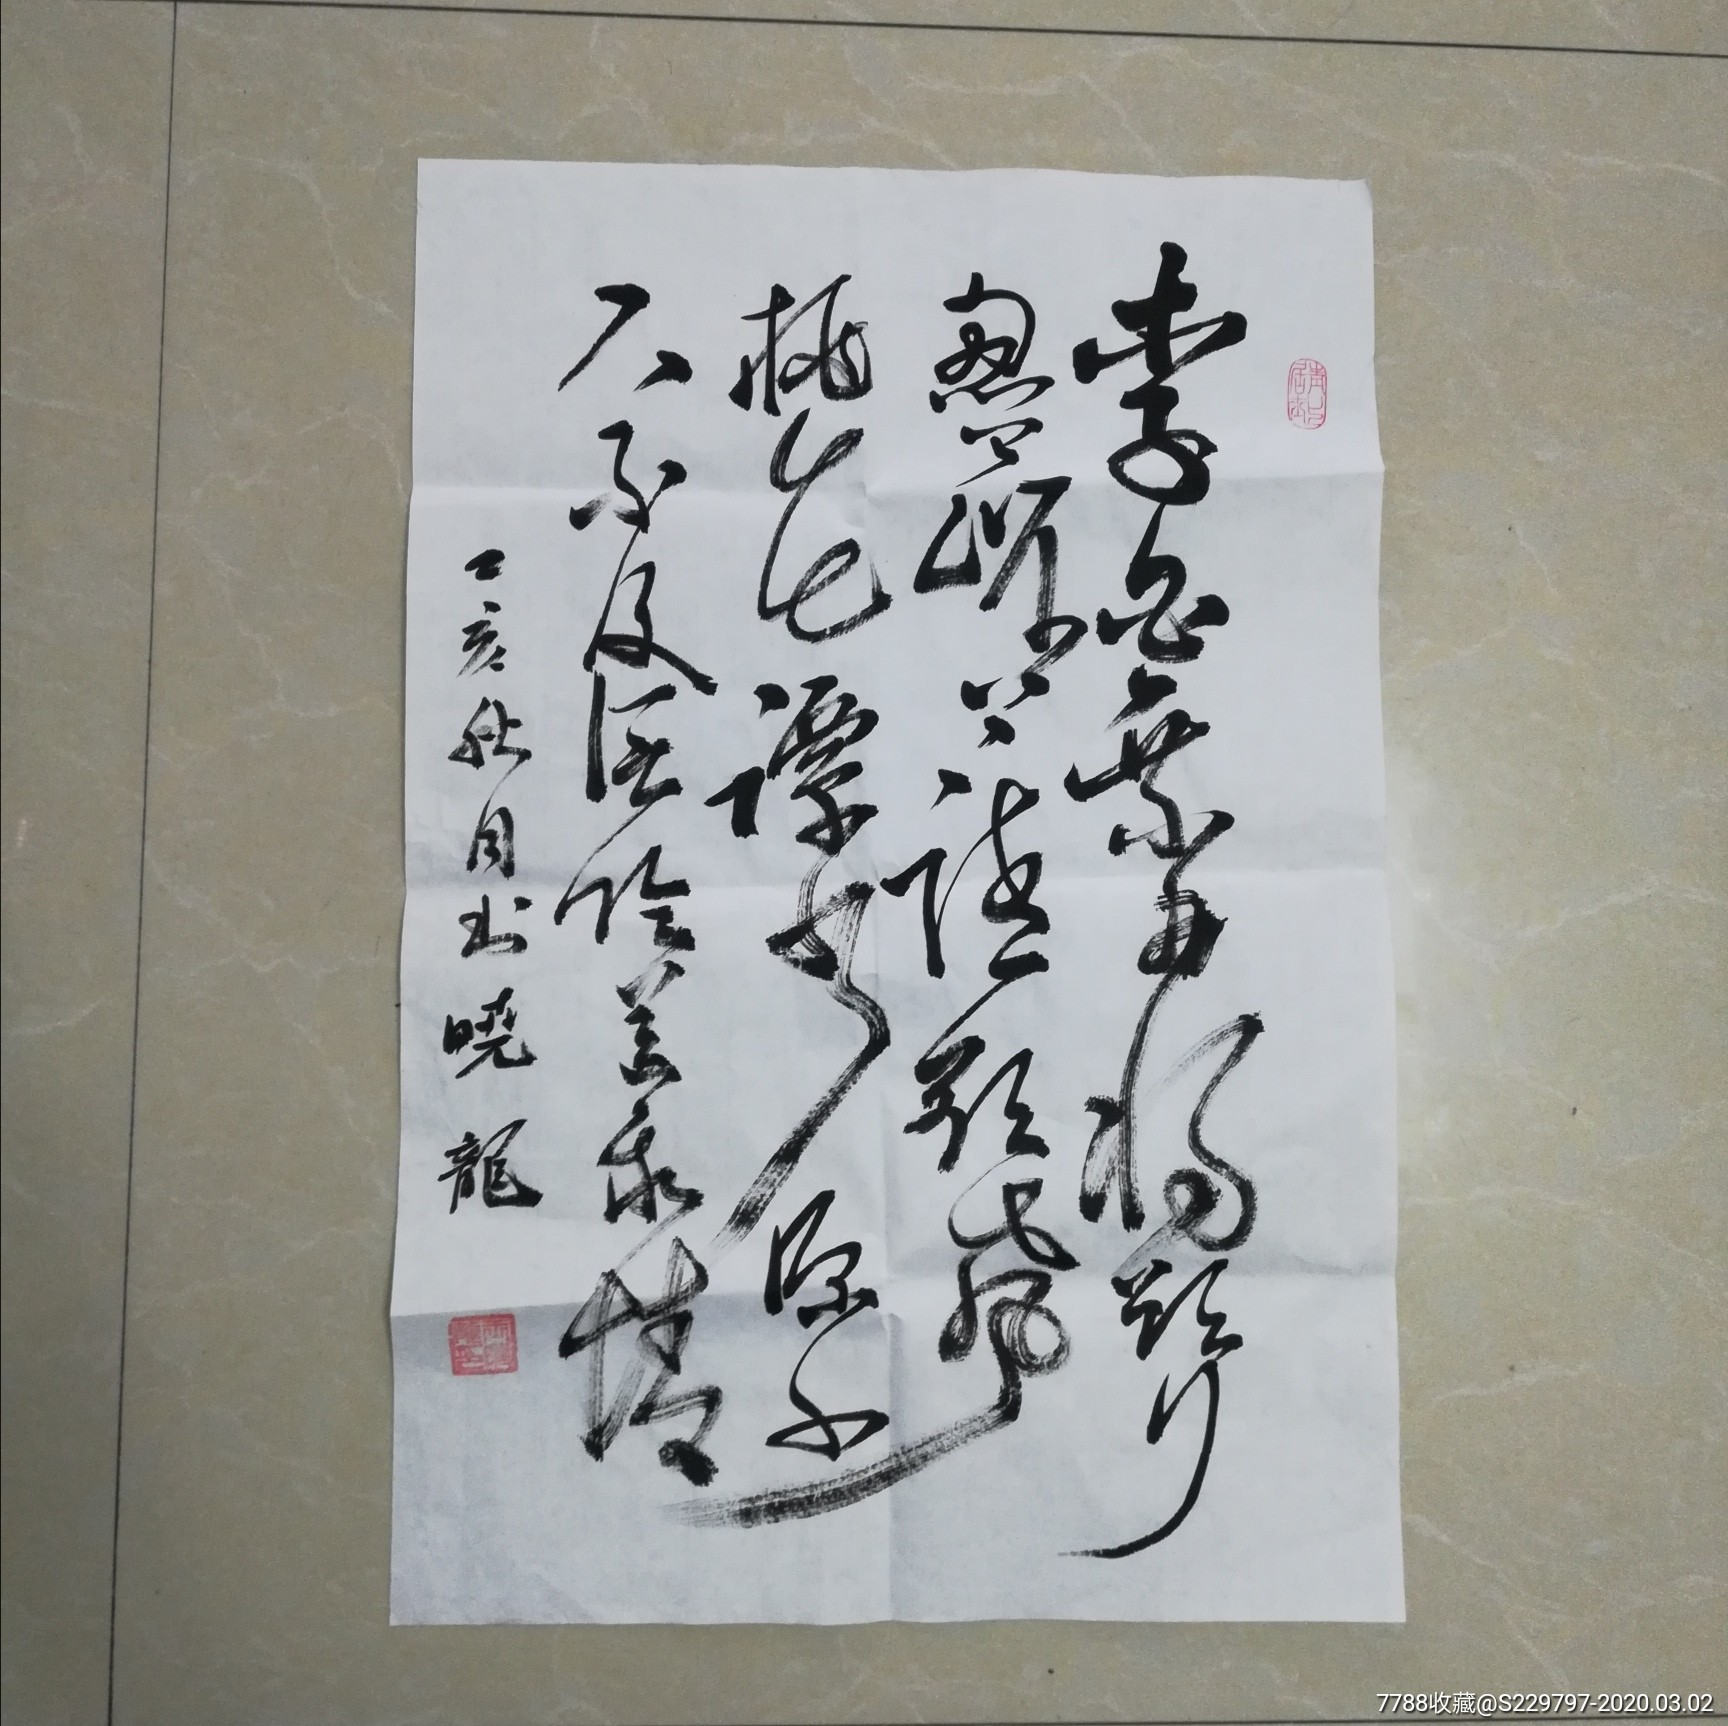 李白乘舟将欲行
忽闻岸上踏歌声
桃花潭水深千
尺不及汪伦送我情
己亥秋月书曉龍
7788收藏@S229797-2020.03.02